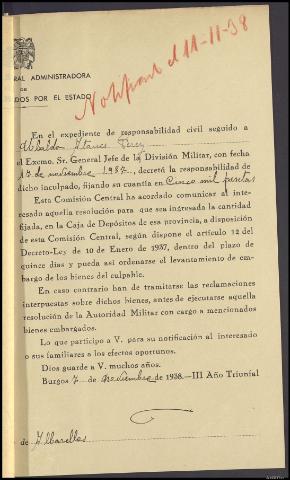 RAL ADMINISTRADORA
DE
DOS POR EL ESTADO
Notifcant el 11-11-38
En el expediente de responsabilidad civil seguido a
Ubaldo Perez
el Excmo. Sr. General Jefe de la División Militar, con fecha
17 de noviembre 1937, decretó la responsabilidad de
dicho inculpado, fijando su cuantía en Cinco mil pesetas
Esta Comisión Central ha acordado comunicar al inte-
resado aquella resolución para que sea ingresada la cantidad
fijada, en la Caja de Depósitos de esa provincia, a disposición
de esta Comisión Central, según dispone el artículo 12 del
Decreto-Ley de 10 de Enero de 1937, dentro del plazo de
quince días y pueda así ordenarse el levantamiento de em-
bargo de los bienes del culpable.
En caso contrario han de tramitarse las reclamaciones
interpuestas sobre dichos bienes, antes de ejecutarse aquella
resolución de la Autoridad Militar con cargo a mencionados
bienes embargados.
Lo que participo a V. para su notificación al interesado
o sus familiares a los efectos oportunos.
Dios guarde a V. muchos años.
Burgos 7 de noviembre de 1938.—III Año Triunfal
de Albarelles